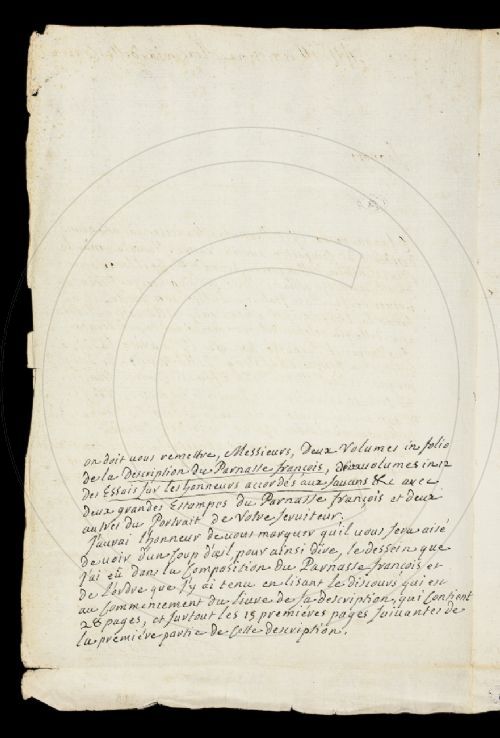 on doit vous remettre, Messieurs, Deux Volumes in folio
de la Description du Parnasse françois, deux volumes in 12
des Essais sur les honneurs accordés aux savans &c avec
deux grandes Estampes du Parnasse françois et deux
autres du Portrait de Votre serviteur.
J'aurai l'honneur de vous marquer qu'il vous sera aisé
de voir d'un coup d'œil pour ainsi dire, le dessein que
j'ai eü dans la Composition du Parnasse françois et
de l'ordre que j'y ai tenu en lisant le discours qui est
au Commencement du livre de sa description, qui Contient
28 pages, et surtout les 15 premières pages suivantes de
la première partie de Cette description.